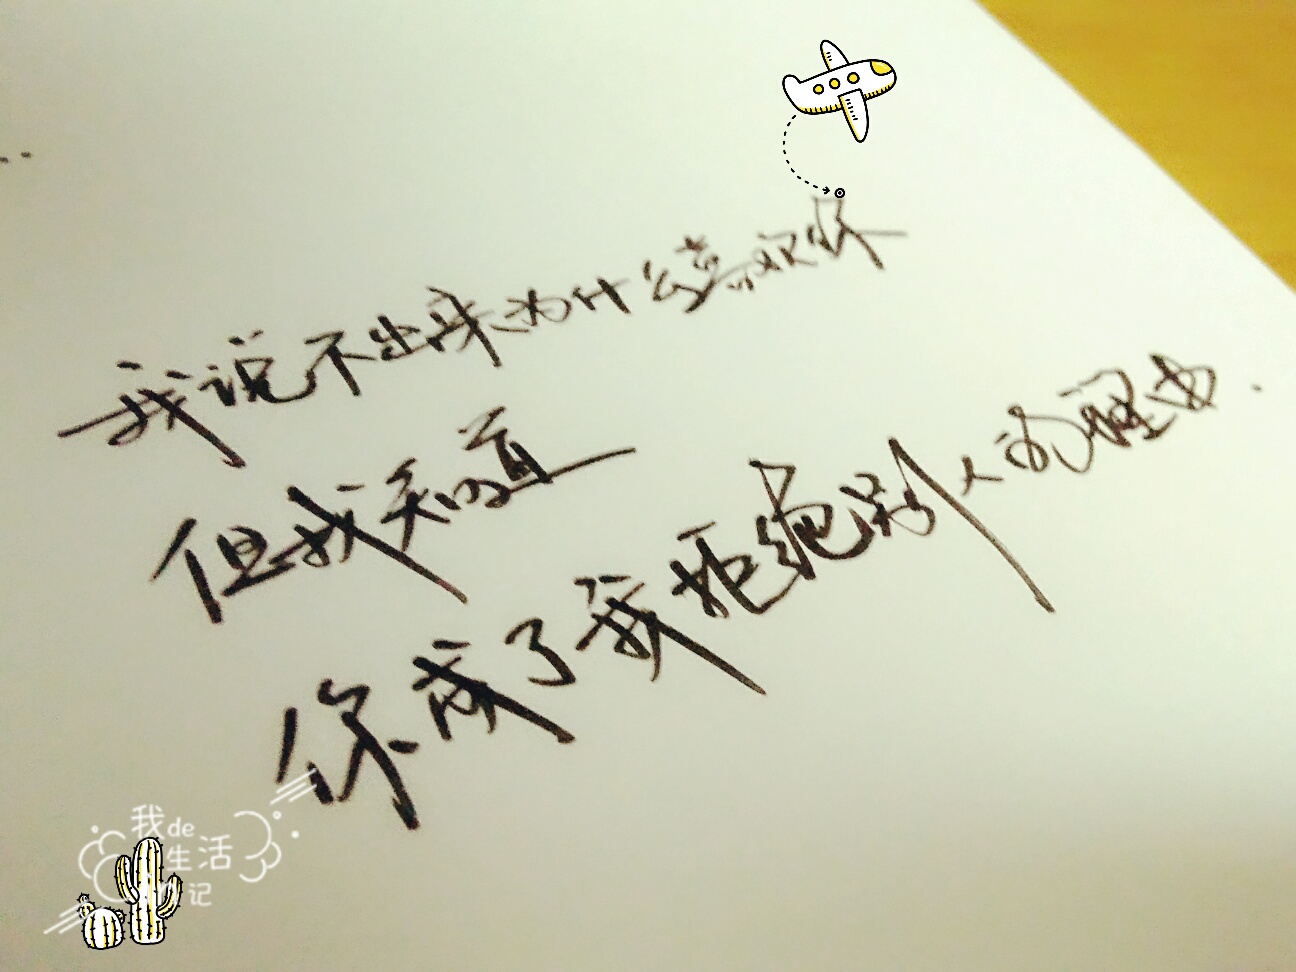 ..
我说不出来为什么喜欢你
但我知道
你成了我拒绝别人的理由.
我de
生活
记